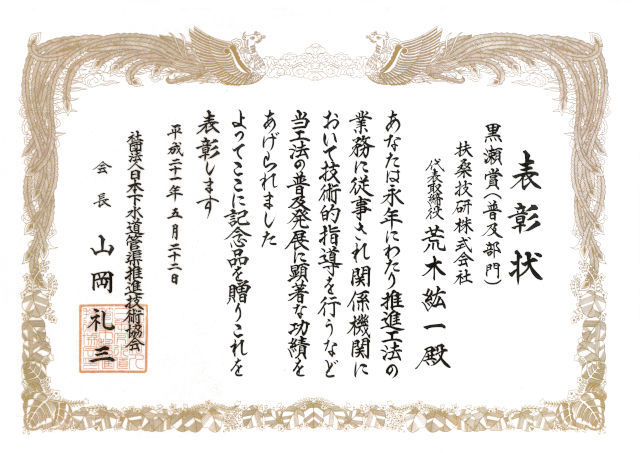 表彰状
黒瀬賞(普及部門)
扶桑技研株式会社
代表取締役 荒木紘一殿
あなたは永年にわたり推進工法の
業務に従事され関係機関に
おいて技術的指導を行うなど
当工法の普及発展に顕著な功績を
あげられました
よってここに記念品を贈りこれを
表彰します
平成二十一年五月二十二日
社団法人日本下水道管渠推進技術協会
会長 山岡礼三